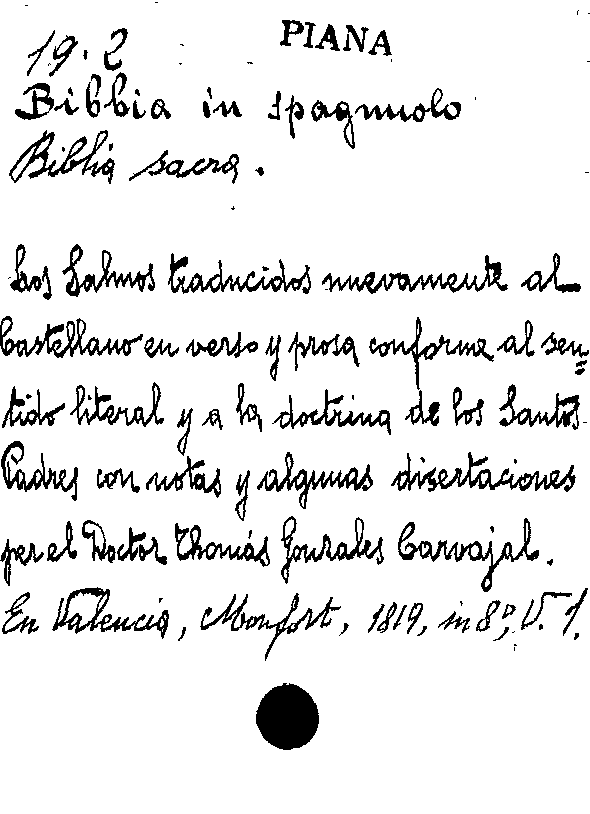 PIANA
19.2
Bibbia in spagnuolo
Biblia sacra.
Los Salmos traducidos nuevamente al
Castellano en verso y prosa conforme al sen=
tido literal y a la doctrina de los Santos
Padres con notas y algunas disertaciones
per el Doctor Thomás Gonzales Carvajal.
En Valencia, Monfort, 1819, in 8º, V. 1.